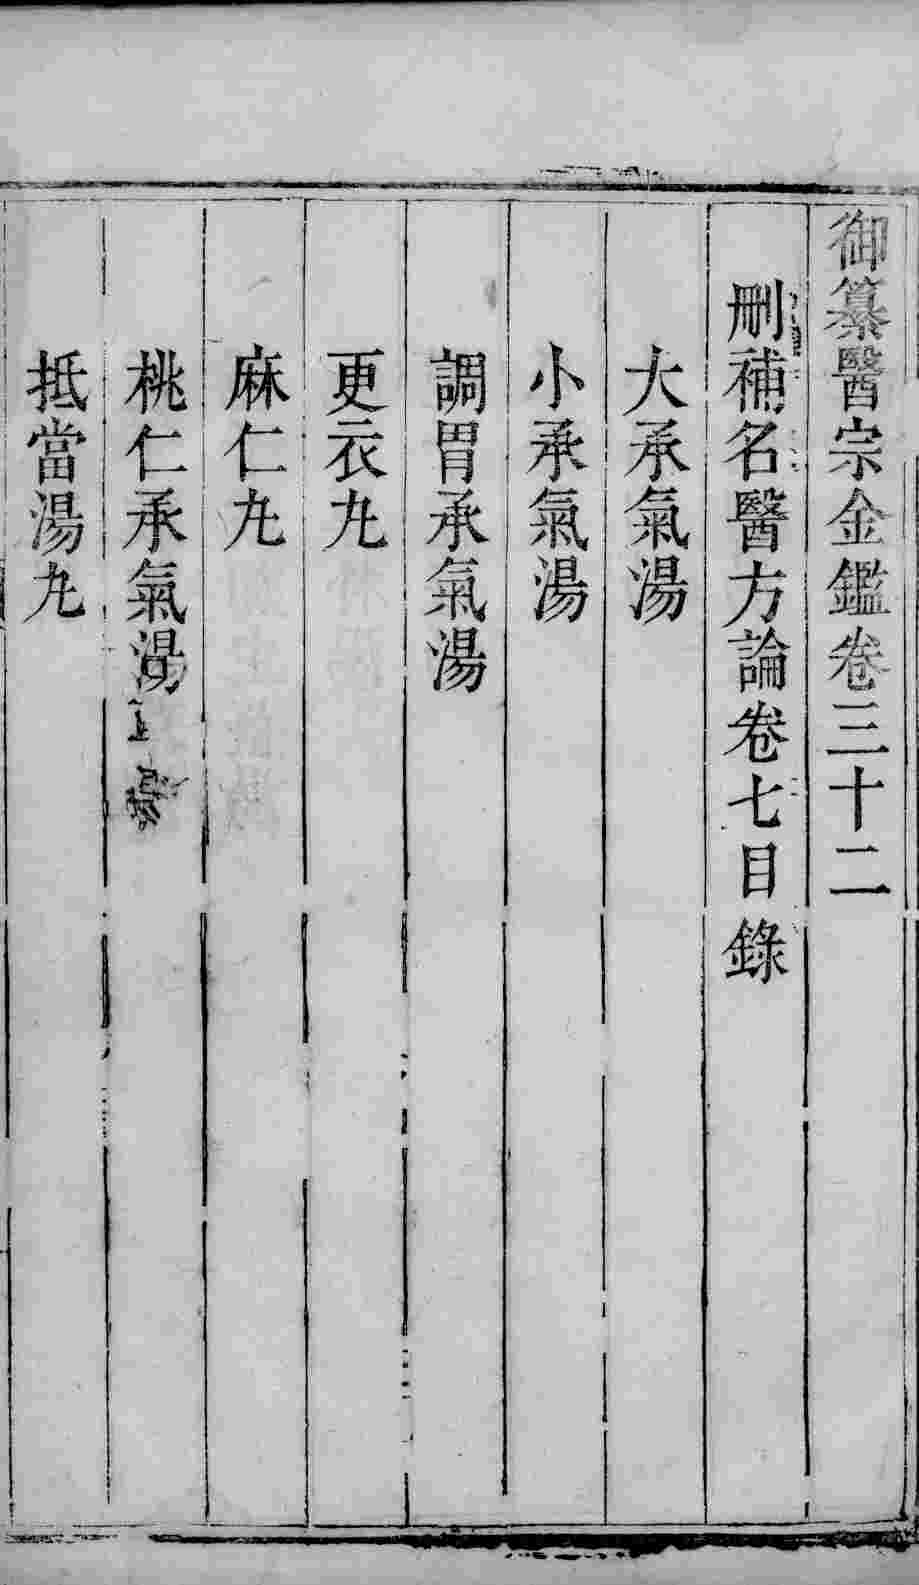 御纂醫宗金鑑卷三十二
刪補名醫方論卷七目錄
大承氣湯
小承氣湯
調胃承氣湯
更衣丸
麻仁丸
桃仁承氣湯
抵當湯丸